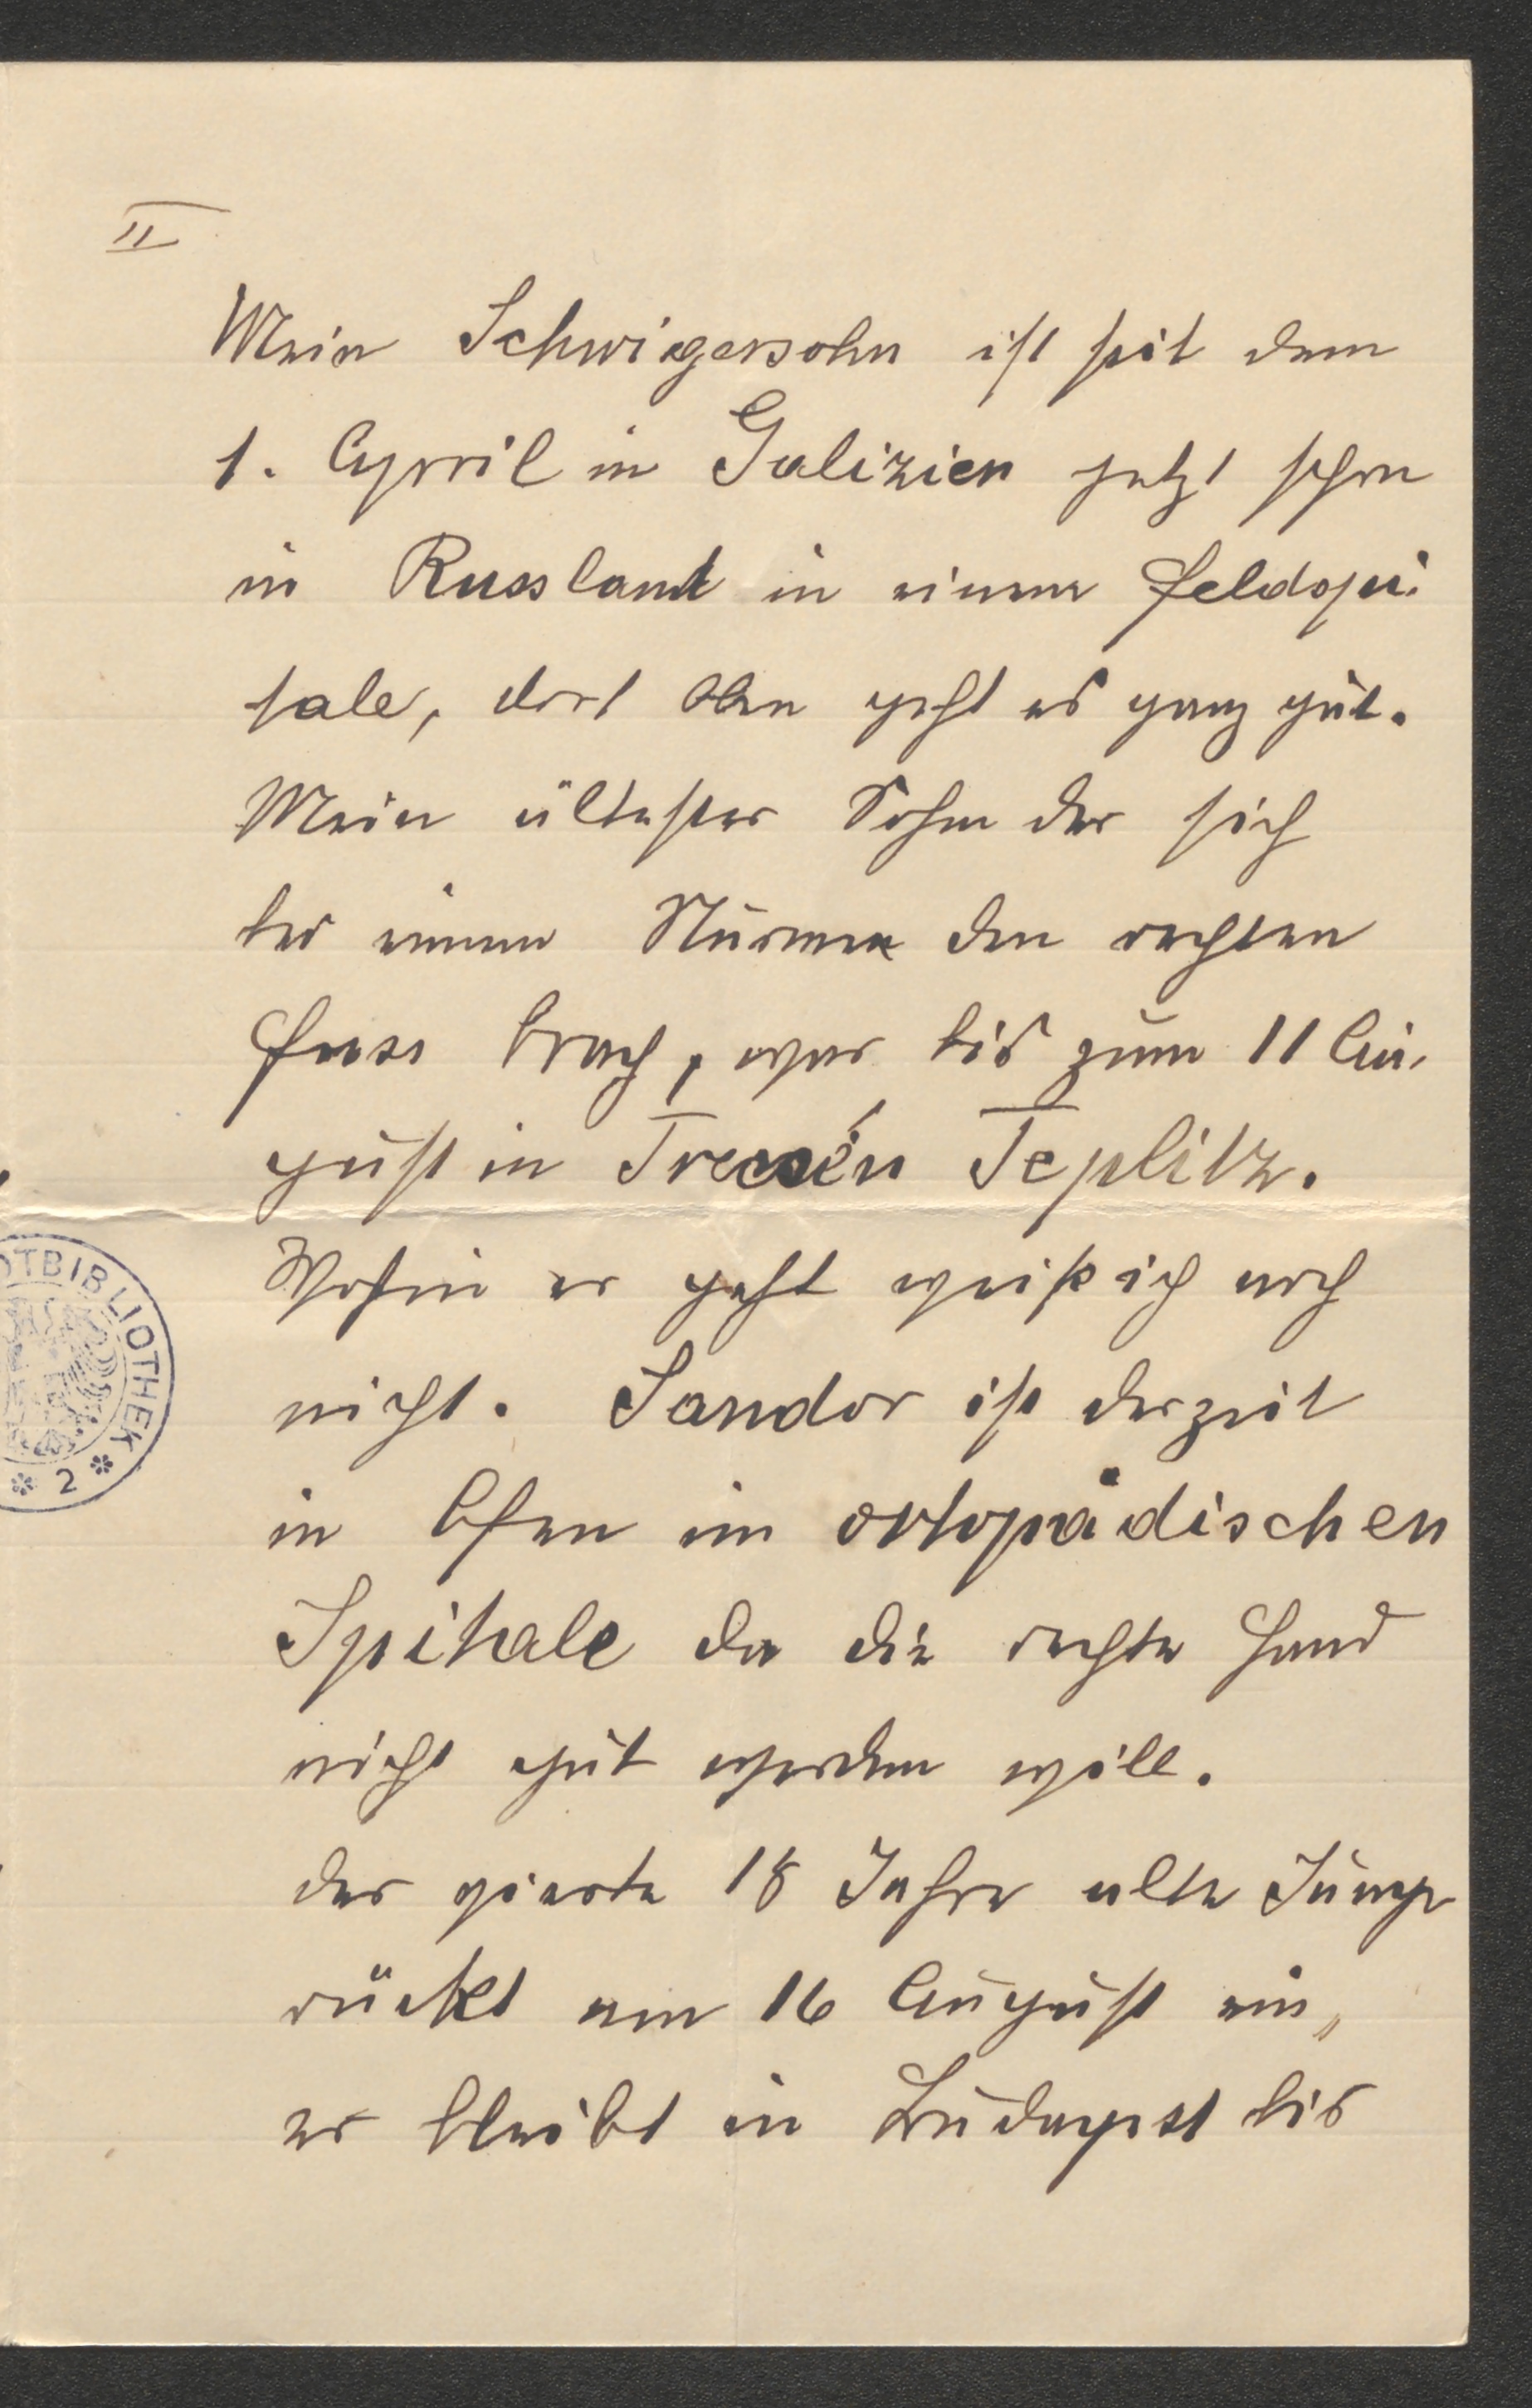 II
Mein Schwigersohn ist seit dem
1. April in Galizien jetzt schon
in Russland in einem Feldspi-
tale, dort oben geht es ganz gut.
Mein ältester Sohn der sich
bei einem Sturme den rechten
Fuss brach, war bis zum 11 Au-
gust in Trencsén Teplitz.
Wohin er geht weiß ich noch
nicht. Sandor ist derzeit
in Ofen im ortopädischen
Spitale da die rechte Hand
nicht gut werden will.
der vierte 18 Jahre alte Junge
rückt am 16 August ein,
er bleibt in Budapest bis
OTBIBLIOTHEK
* 2 *